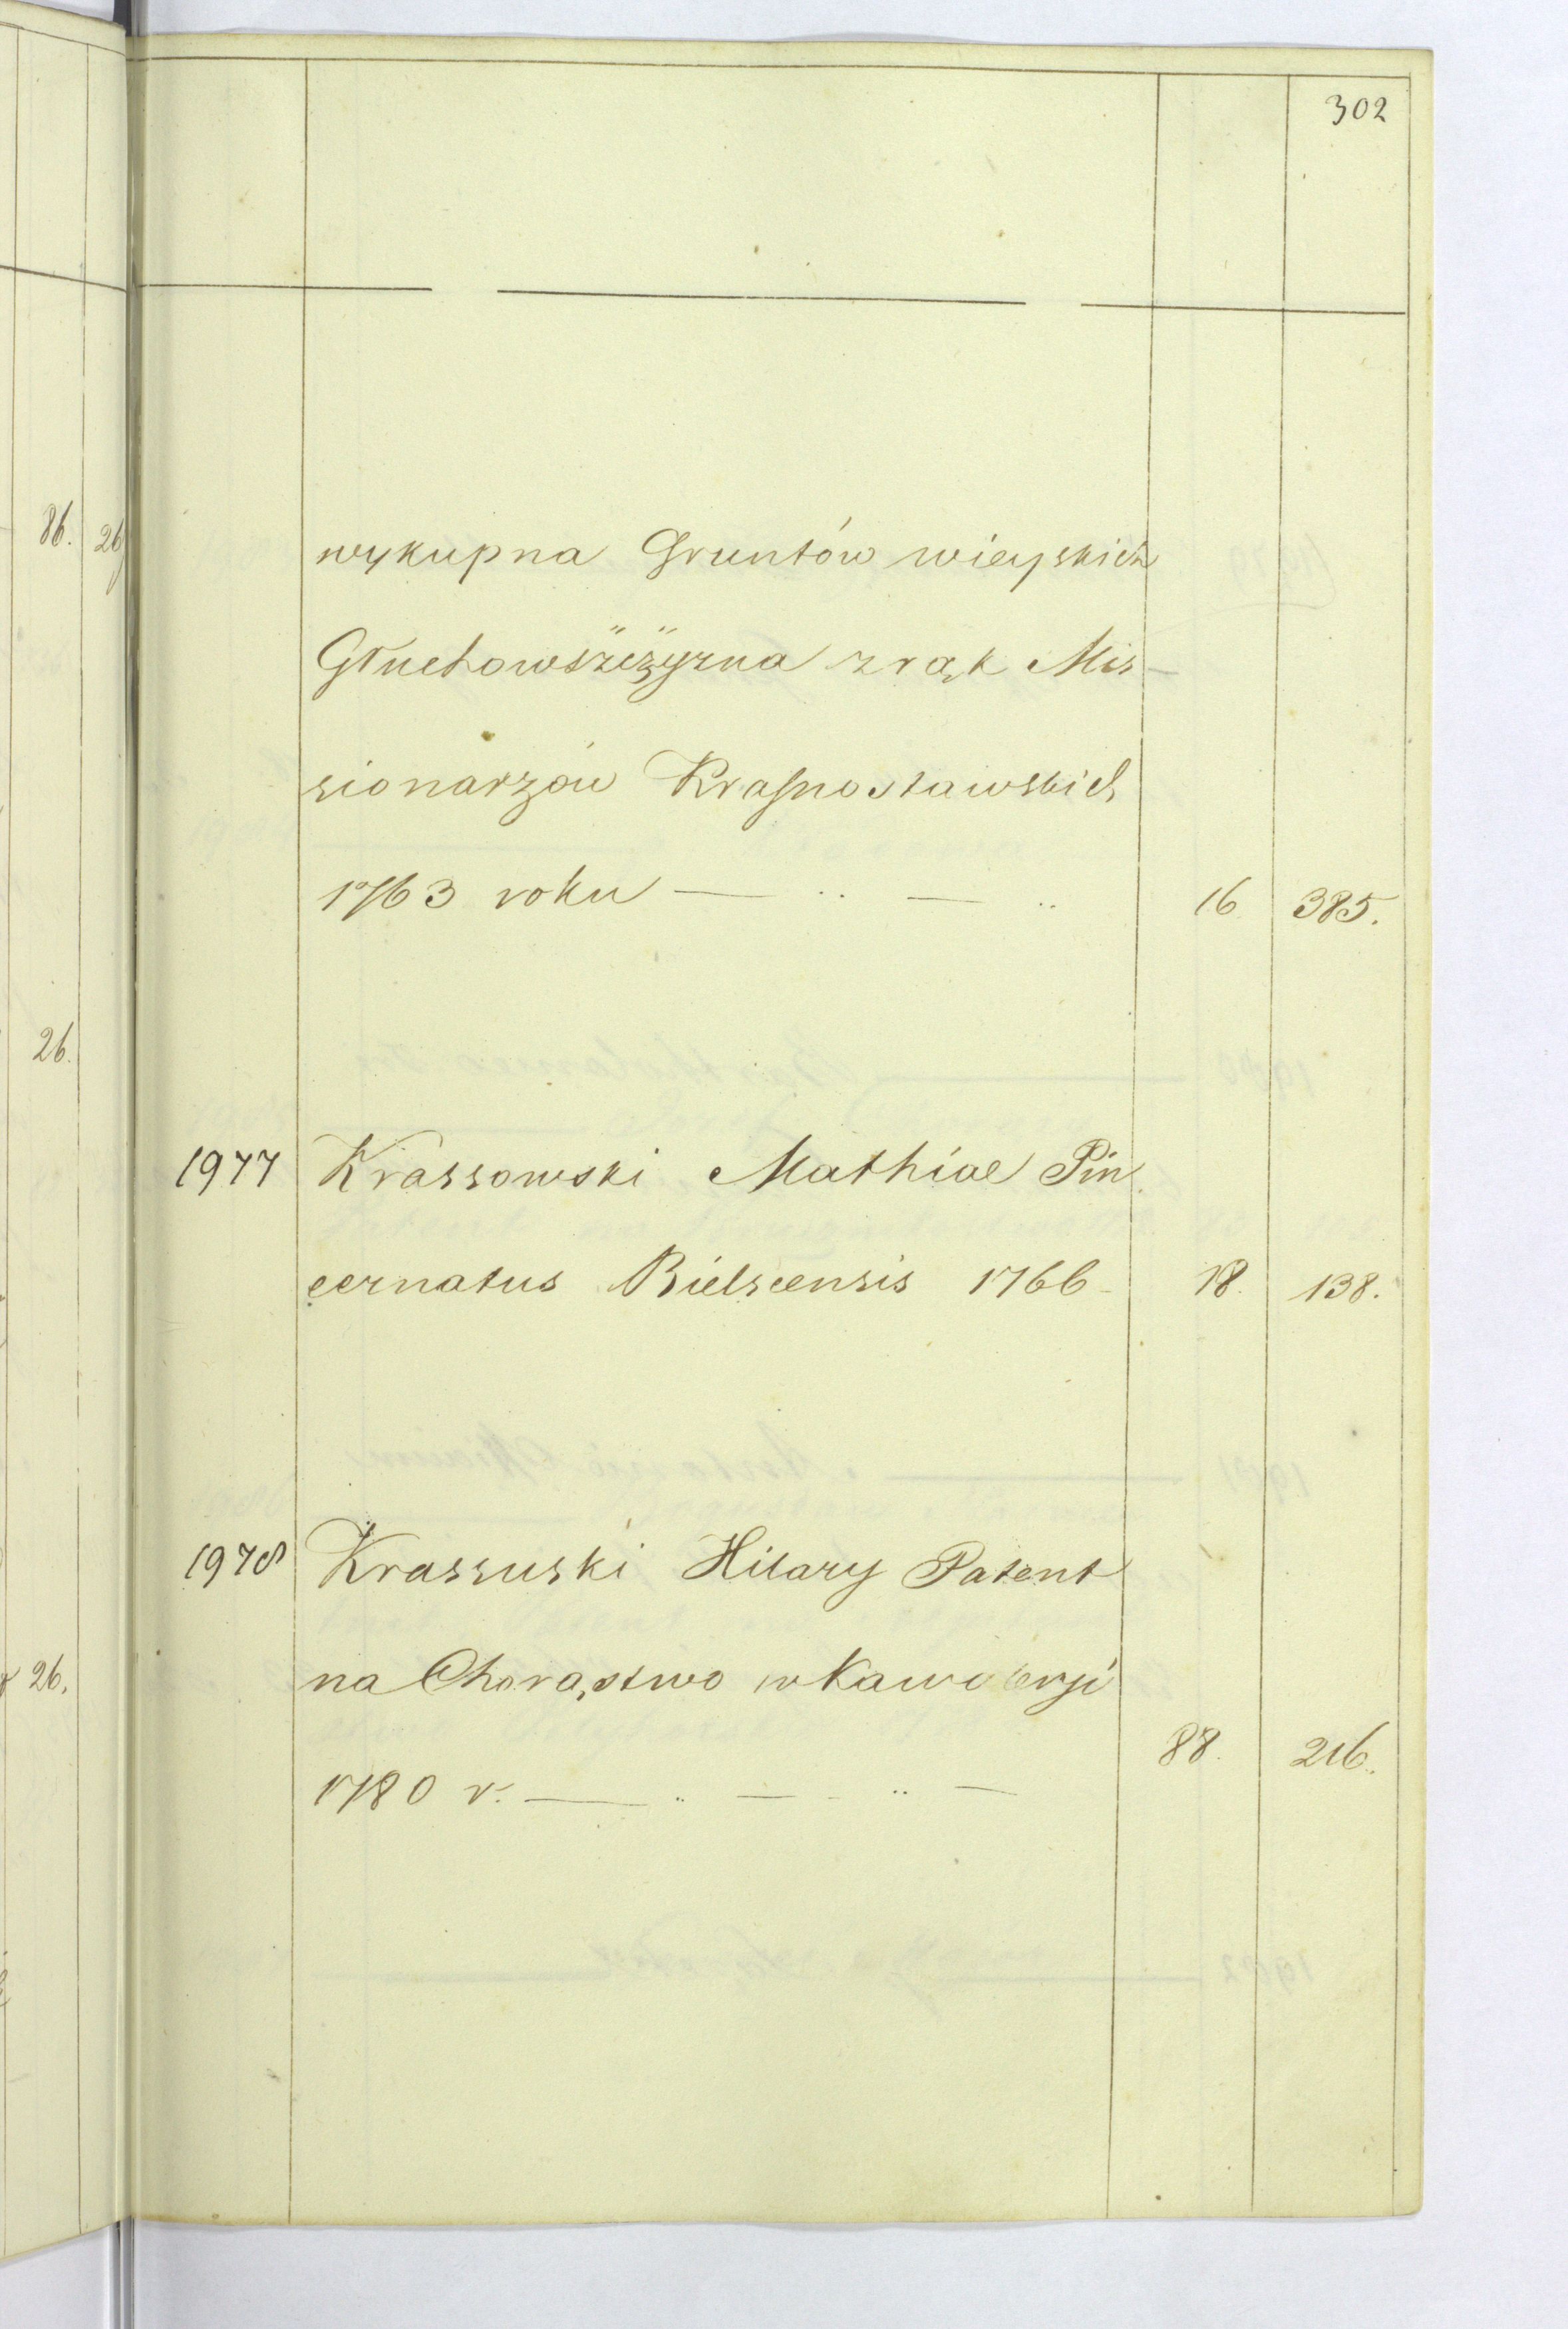 302
86. 26
wykupna Gruntów wieyskich
zrąk Mis-
sionarzów Krasnostawskich
1763 roku — .. — .. 16 385.
26.
1977 Krassowski Mathiae Pin
cernatus Bielscensis 1766 - 18. 138.
1978 Krassuski Hilary Patent
26. na Chorąstwo w Kawaleryi
88. 216.
1780 r. — .. — .. —